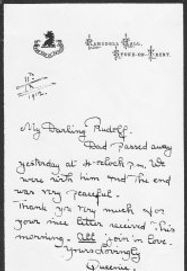 Ramsdell Hall,
Stoke-on-Trent.
11th
1912.
My Darling Rudolf.
Dad passed away
yesterday at 4-oclock p.m. We
were with him and the end
was very peaceful.
Thank you very much for
your nice letter received this
morning. All join in love.
Yours lovingly
Queenie.